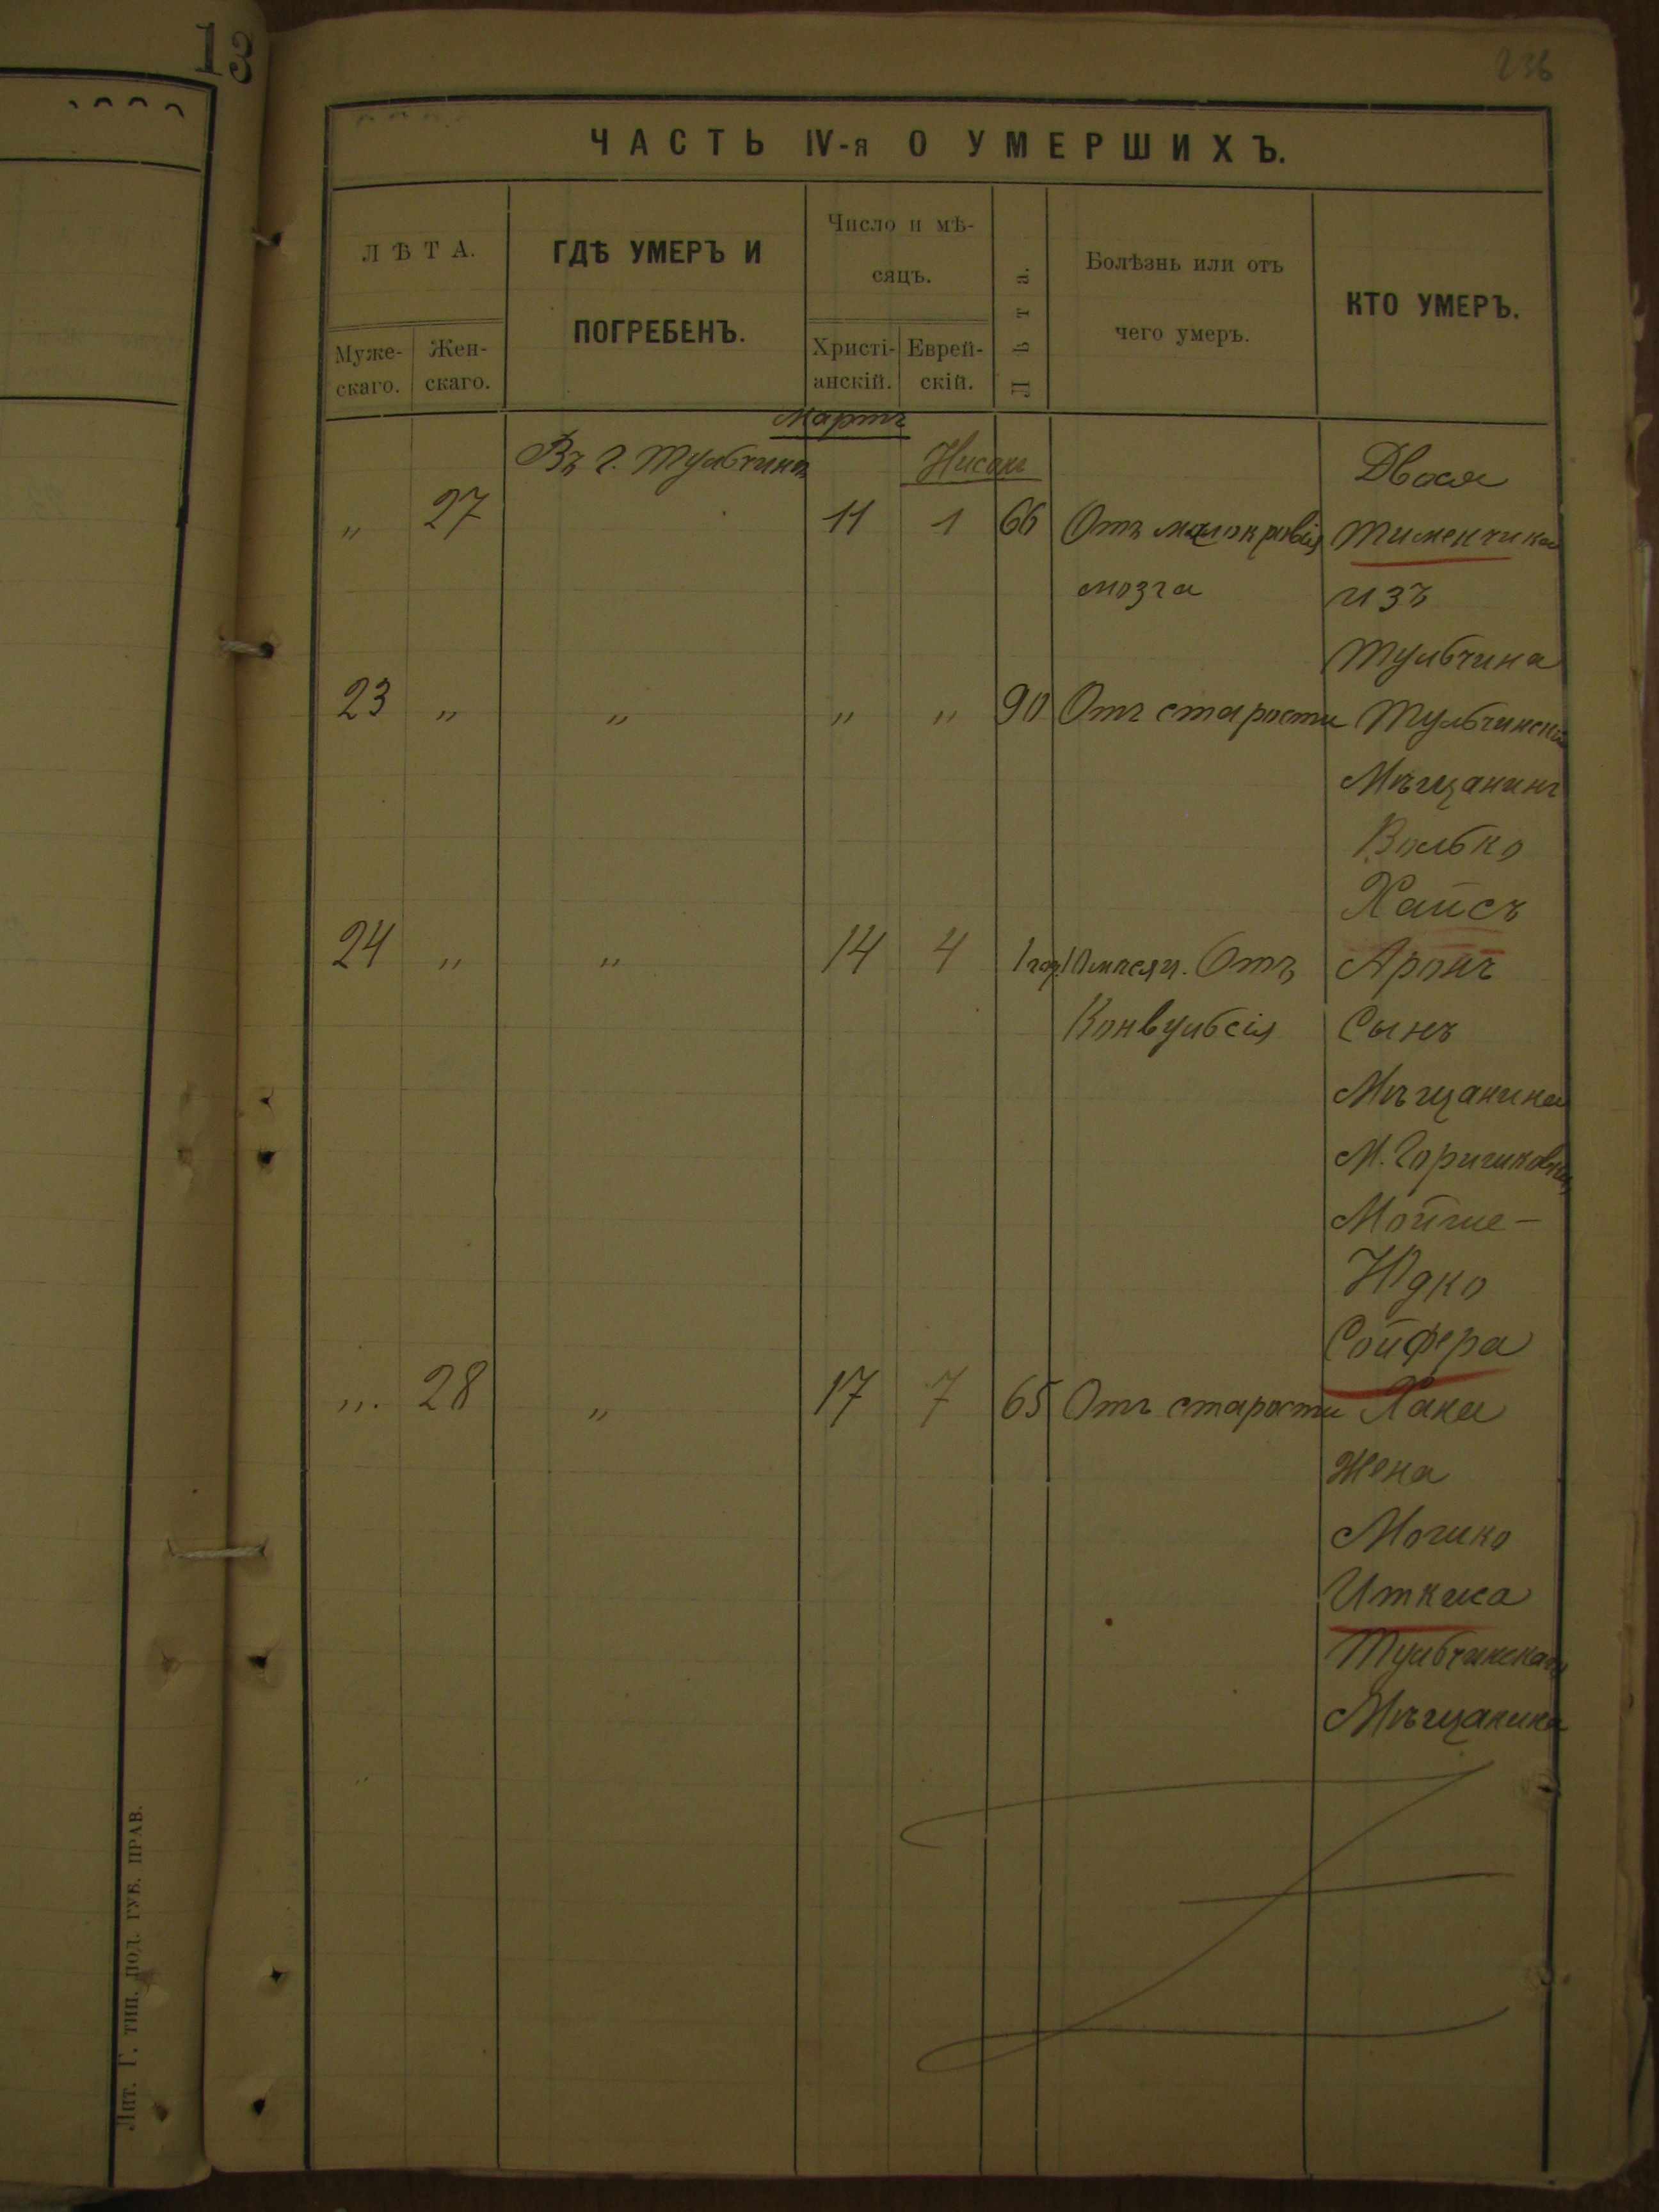 13
236
ЧАСТЬ IV-я О УМЕРШИХЪ.
ЛѢТА.
Муже-
скаго.
Жен-
скаго.
ГДѢ УМЕРЪ И
ПОГРЕБЕНЪ.
Число и мѣ-
сяцъ.
Христі-
анскій.
Еврей-
скій.
Лѣта.
Болѣзнь или отъ
чего умеръ.
КТО УМЕРЪ.
Мартъ
Въ г. Тульчинѣ Нисонъ Двося
„ 27 11 1 66 Отъ малокровія Тименчика
мозга изъ
Тульчина
23 „ „ „ „ 90 Отъ старости Тульчинскій
Мѣщанинъ
Волько
Хаисъ
24 „ „ 14 4 1 год. 10 мѣсяц. Отъ Аронъ
Конвульсія Сынъ
Мѣщанина
М.
Мойше-
Юдко
Сойфера
„ 28 „ 17 7 65 Отъ старости Хана
Жена
Мошко
Иткиса
Тульчинскаго
Мѣщанина
Лит. Г. тип. под. губ. прав.